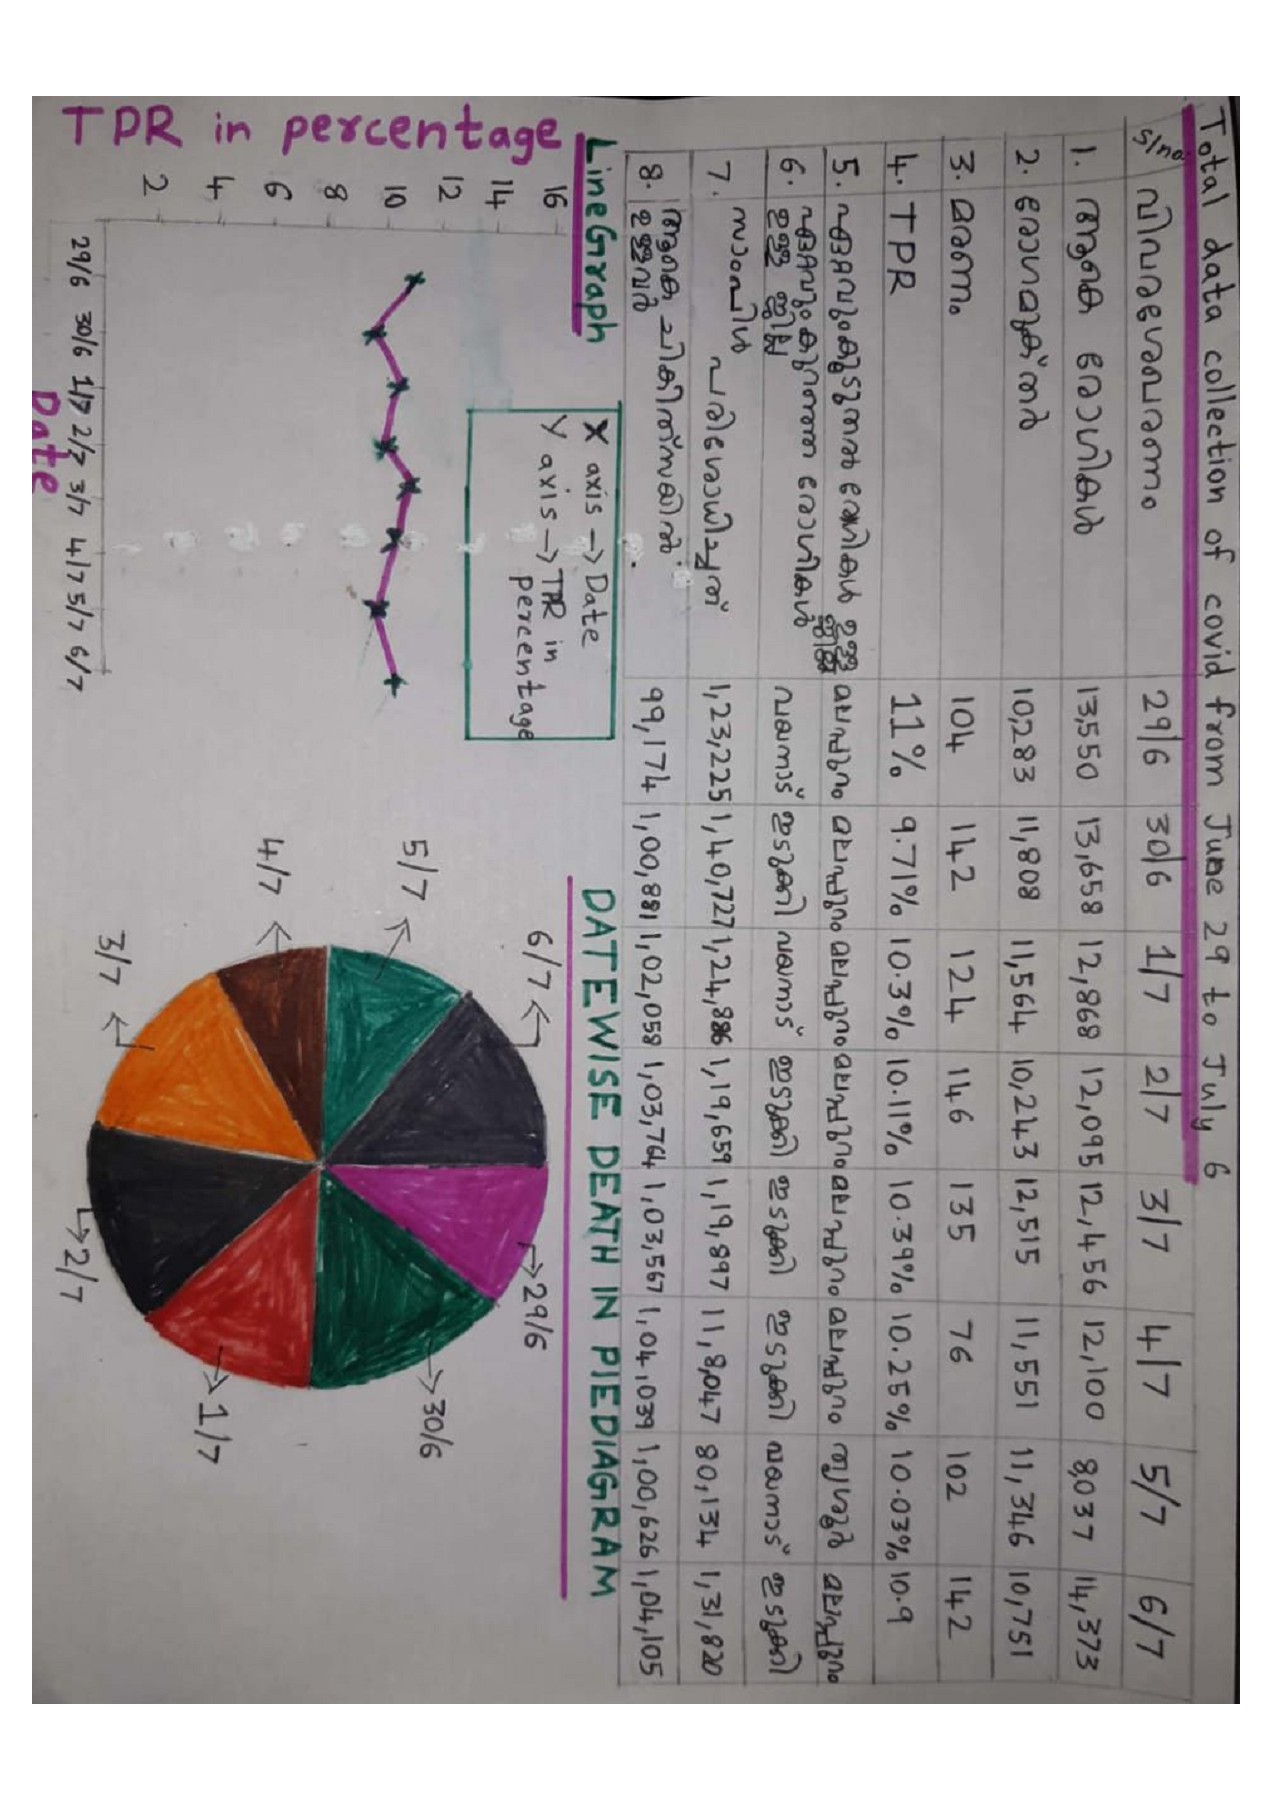 Total data collection of covid from June 29 to July 6
s/no വിവരശേഖരണം 29/6 30/6 1/7 2/7 3/7 4/7 5/7 6/7
1. ആകെ രോഗികൾ 13,550 13,658 12,868 12,095 12,456 12,100 8,037 14,373
2. രോഗമുക്തർ 10,283 11,808 11,564 10,243 12,515 11,551 11,346 10,751
3. മരണം 104 142 124 146 135 76 102 142
4. TPR 11% 9.71% 10.3% 10.11% 10.39% 10.25% 10.03% 10.9
5. ഏറ്റവും കൂടുതൽ രോഗികൾ ഉള്ള ജില്ല മലപ്പുറം മലപ്പുറം മലപ്പുറം മലപ്പുറം മലപ്പുറം മലപ്പുറം തൃശൂർ മലപ്പുറം
6. ഏറ്റവും കുറഞ്ഞ രോഗികൾ ഉള്ള ജില്ല വയനാട് ഇടുക്കി വയനാട് ഇടുക്കി ഇടുക്കി ഇടുക്കി വയനാട് ഇടുക്കി
7. സാംപിൾ പരിശോധിച്ചത് 1,23,225 1,40,727 1,24,886 1,19,659 1,19,897 11,8,047 80,134 1,31,820
8. ആകെ ചികിത്സയിൽ ഉള്ളവർ 99,174 1,00,881 1,02,058 1,03,764 1,03,567 1,04,039 1,00,626 1,04,105
LineGraph
X axis → Date
Y axis → TPR in
percentage
TPR in percentage
16
14
12
10
8
6
4
2
29/6 30/6 1/7 2/7 3/7 4/7 5/7 6/7
Date
DATEWISE DEATH IN PIEDIAGRAM
6/7
29/6
5/7
30/6
4/7
1/7
3/7
2/7